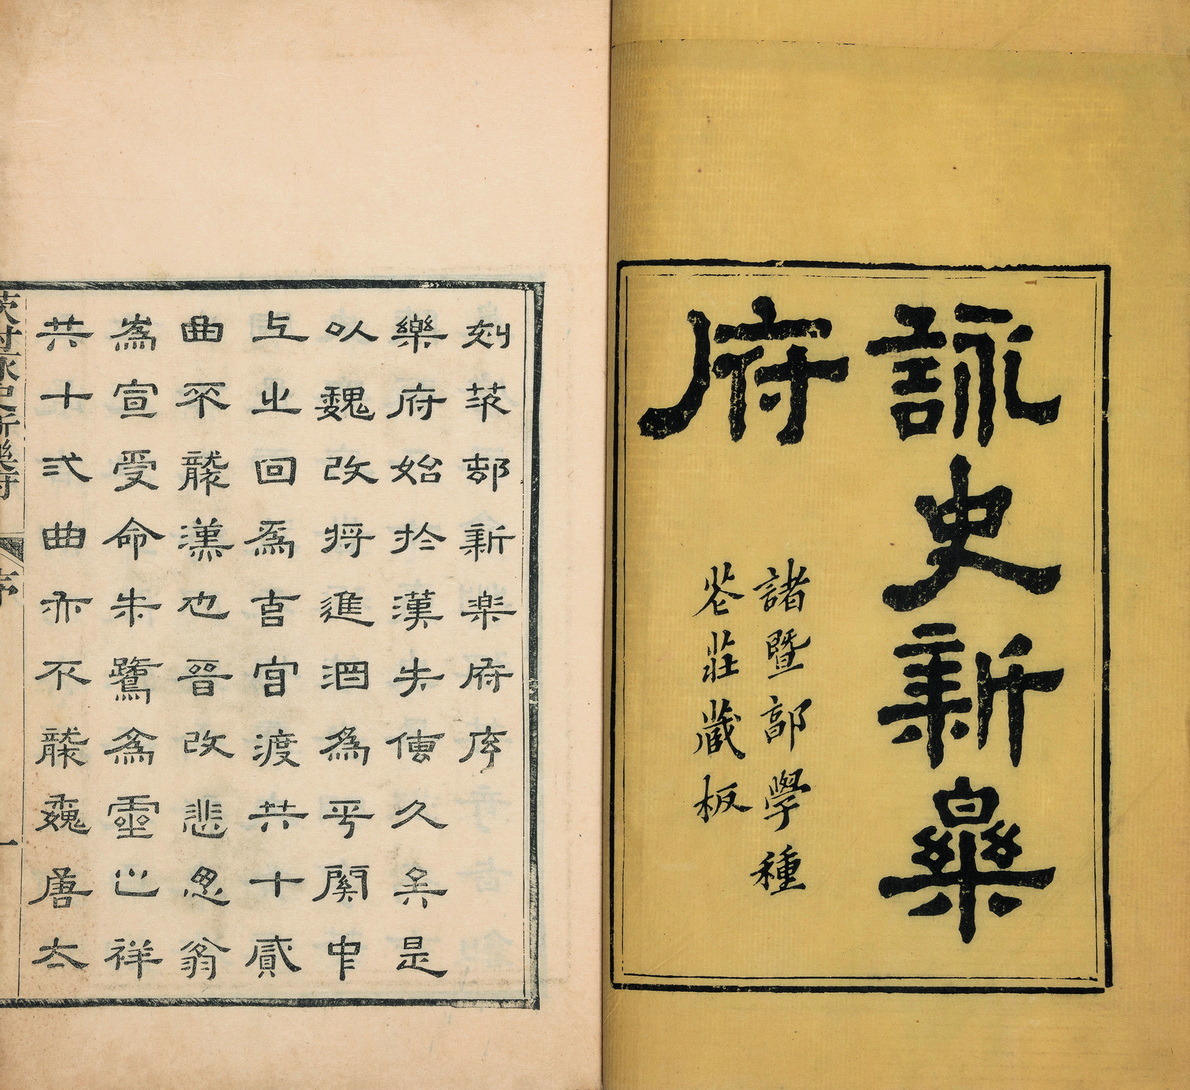 詠史新樂
府
諸暨郭學種
花莊藏板
刻茨邨新楽府序
樂府始於漢失傳久矣是
以魏改将進酒為平關中
上之回爲克官渡共十貳
曲不襲漢也晉改悲思翁
為宣受命朱鷺為靈之祥
共十弍曲亦不襲魏唐太
茨村詠史新樂府 序 一